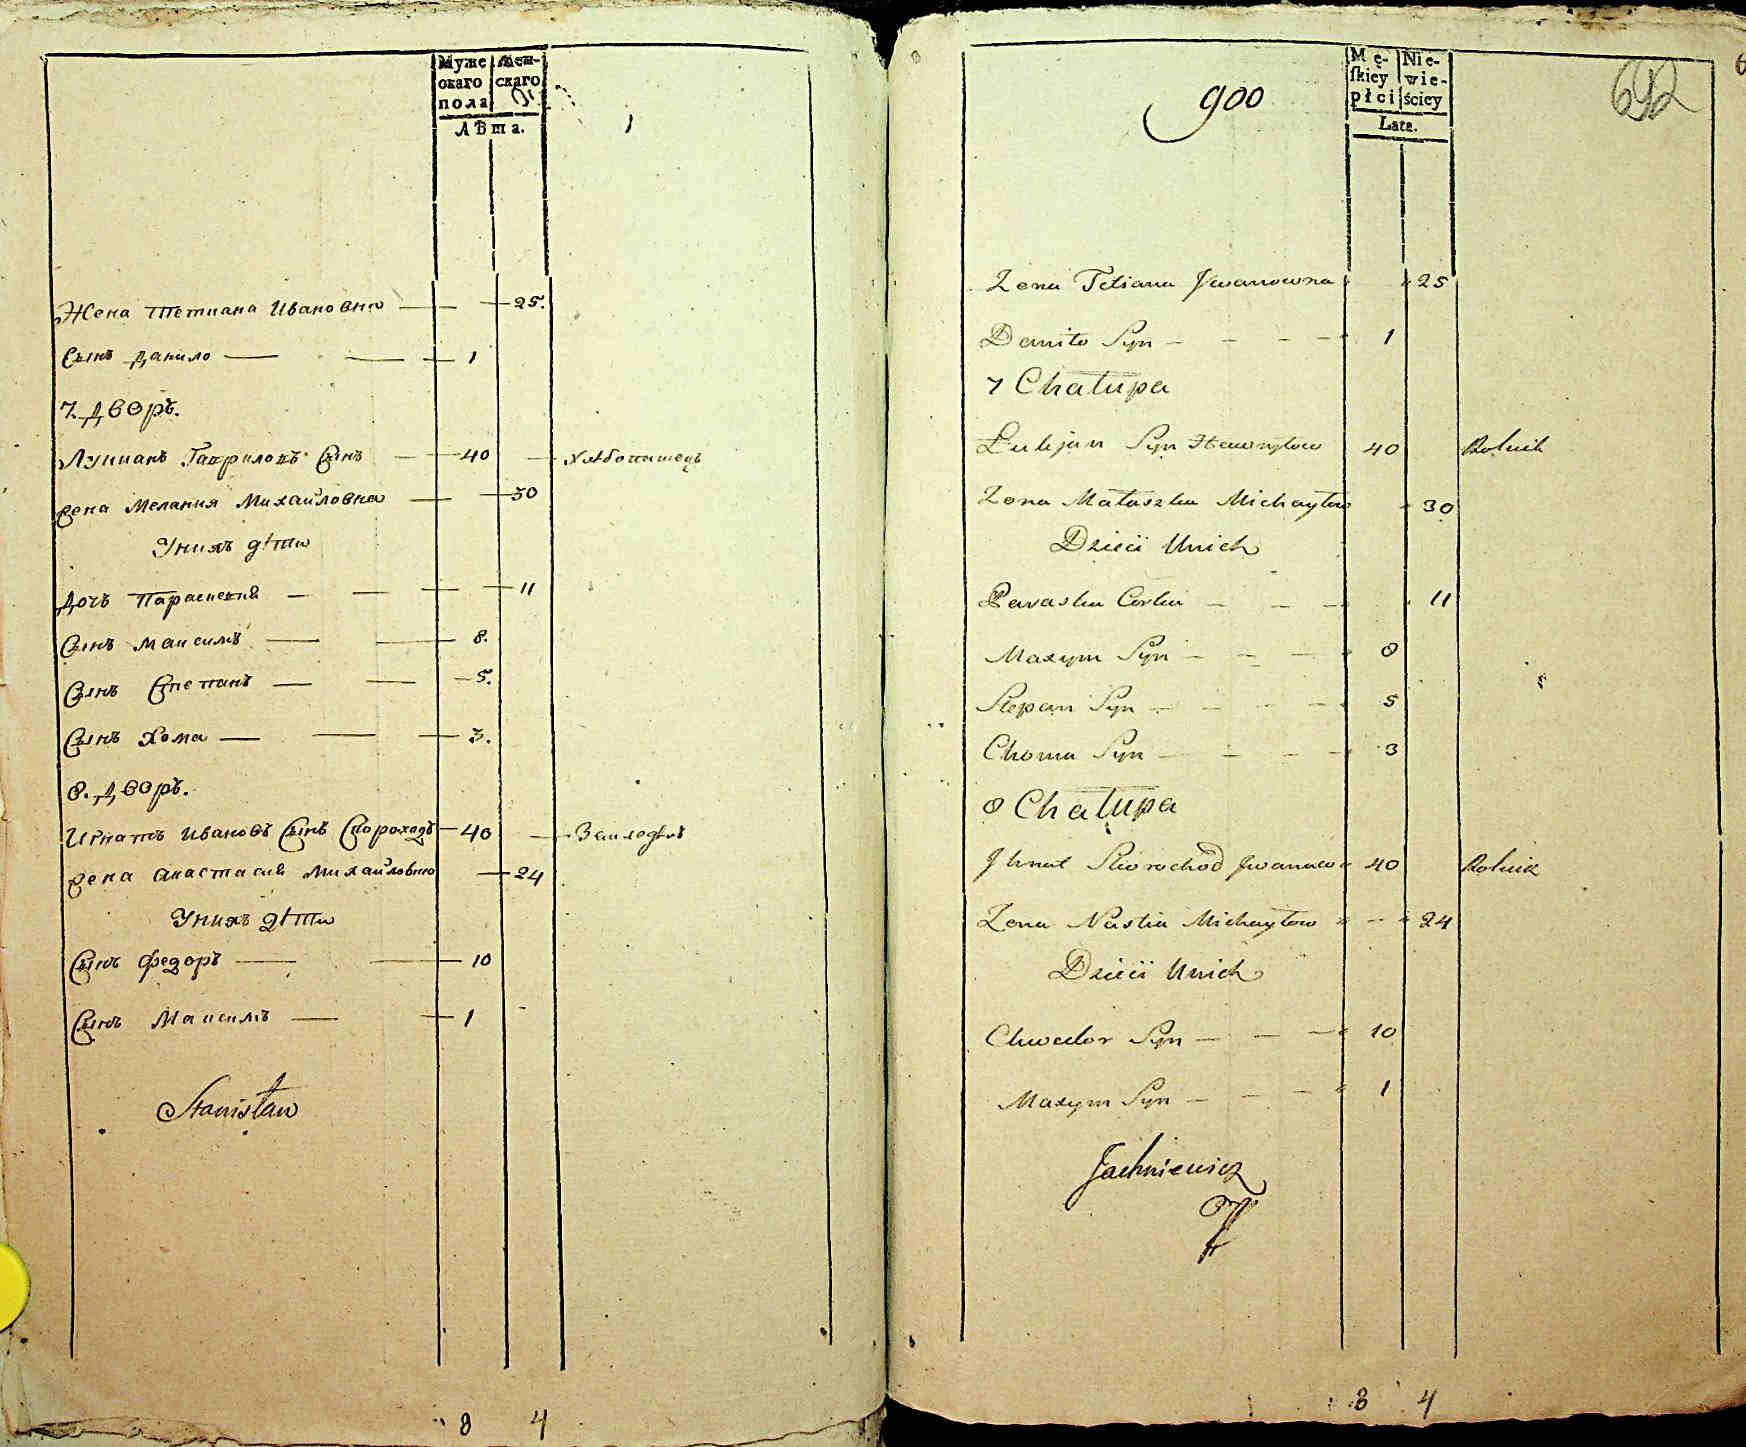 Муже скаго пола
Жен- скаго
Лѣта.
Жена Тетиана Ивановна 25.
Сынъ Данило 1
7. Дворъ.
Лукианъ Гавриловъ Сынъ 40 Хлѣбопашецъ
Жена Мелания Михайловна 30
У нихъ дѣти
Дочъ Параскевия 11
Сынъ Максимъ 8.
Сынъ Степанъ 5.
Сынъ Хома 3.
8. Дворъ.
Игнатъ Ивановъ Сынъ Скороходъ 40
Жена Анастасия Михайловна 24
У нихъ дѣти
Сынъ Федоръ 10
Сынъ Максимъ 1
Stanisław
8 4
900
692
Mę- skiey płci
Nie- wie- ściey
Lata.
Zona Tetiana Jwanowna 25
Daniło Syn 1
7 Chałupa
Łukjan Syn Hawryłow 40 Rolnik
Zona Małaszka Michayłow 30
Dzieci Unich
Paraska Corka 11
Maxym Syn 8
Stepan Syn 5
Choma Syn 3
8 Chałupa
Jhnat Skorochod Jwanow 40 Rolnik
Zona Nastia Michayłow 24
Dzieci Unich
Chwedor Syn 10
Maxym Syn 1
Jachniewicz
8 4